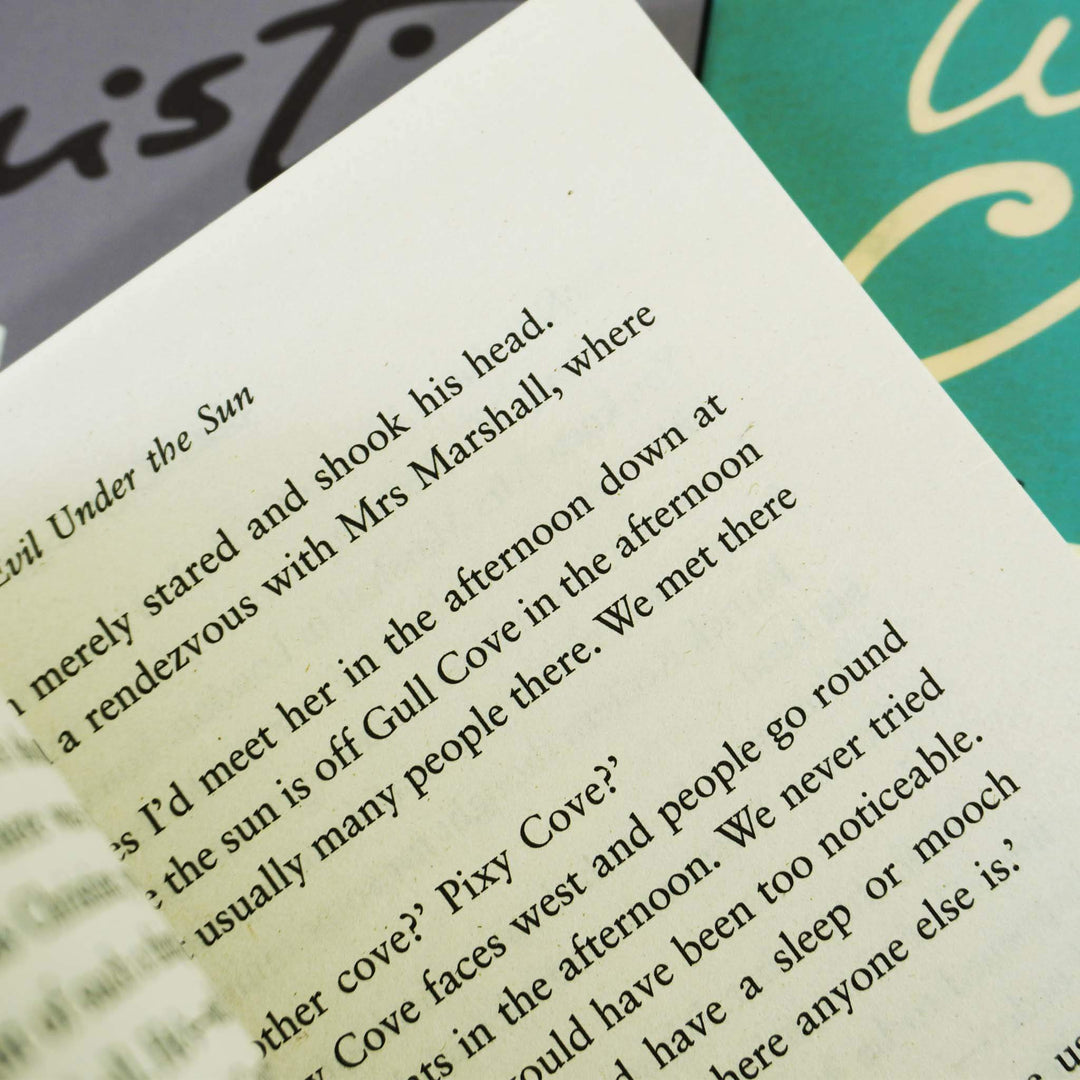 uisTi
Evil Under the Sun
merely stared and shook his head.
a rendezvous with Mrs Marshall, where
I'd meet her in the afternoon down at
the sun is off Gull Cove in the afternoon
usually many people there. We met there
other cove?' Pixy Cove?'
Cove faces west and people go round
in the afternoon. We never tried
would have been too noticeable.
have a sleep or mooch
here anyone else is.'